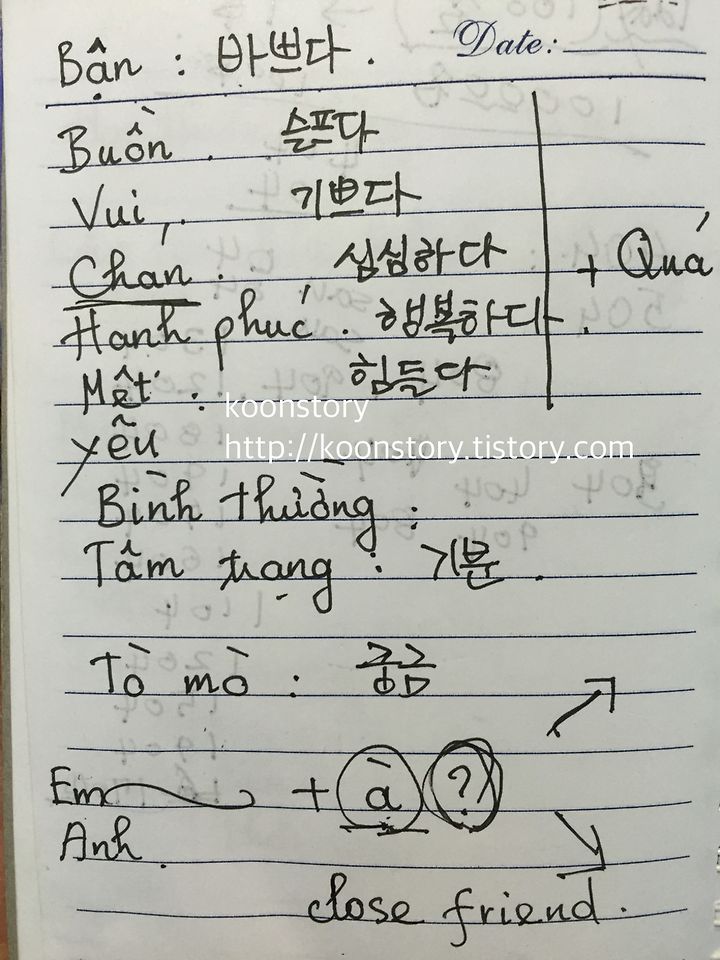 Date:
Bận : 바쁘다.
Buồn . 슬프다
Vui, . 기쁘다
Chán . 심심하다
+ Quá
Hanh phúc . 행복하다 .
Mệt : 힘들다
koonstory
http://koonstory.tistory.com
yếu
Bình thường :
Tâm trạng : 기분 .
Tò mò : 궁금
Em + à ?
Anh .
close friend .